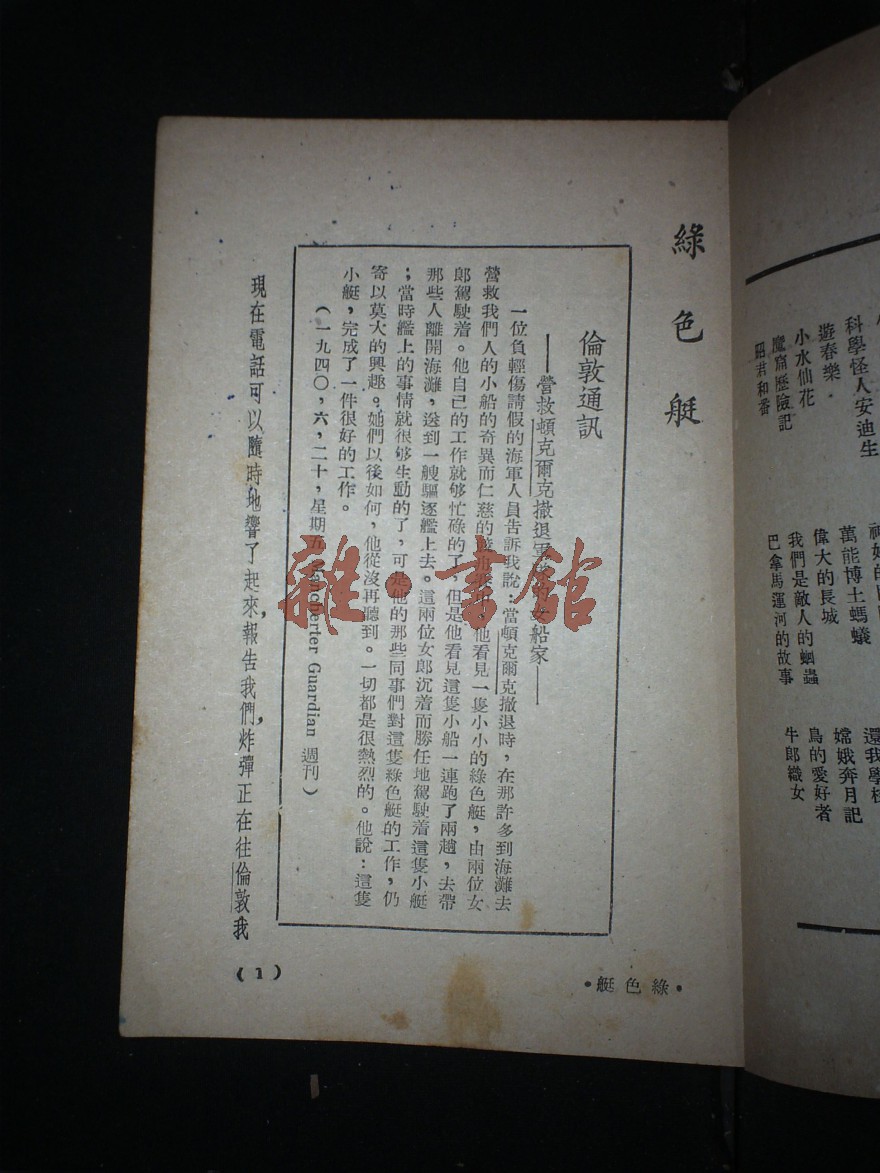 科學怪人安迪生
遊春樂
小水仙花
魔窟歷險記
昭君和番
萬能博士螞蟻
偉大的長城
我們是敵人的蛔蟲
巴拿馬運河的故事
嫦娥奔月記
鳥的愛好者
牛郎織女
綠色艇
倫敦通訊
——營救頓克爾克撤退軍 船家——
一位負輕傷請假的海軍人員告訴我說：當頓克爾克撤退時，在那許多到海灘去
營救我們人的小船的奇異而仁慈的 他看見一隻小小的綠色艇，由兩位女
郎駕駛着。他自己的工作就够忙碌的了，但是他看見這隻小船一連跑了兩趟，去帶
那些人離開海灘，送到一艘驅逐艦上去。這兩位女郎沉着而勝任地駕駛着這隻小艇
；當時艦上的事情就很够生動的了，可是他的那些同事們對這隻綠色艇的工作，仍
寄以莫大的興趣。她們以後如何，他從沒再聽到。一切都是很熱烈的。他說：這隻
小艇，完成了一件很好的工作。
（一九四〇，六，二十，星期五 Mancherter Guardian 週刊）
現在電話可以隨時地響了起來，報告我們，炸彈正在往倫敦我
（1）
•綠色艇•
雜·書館